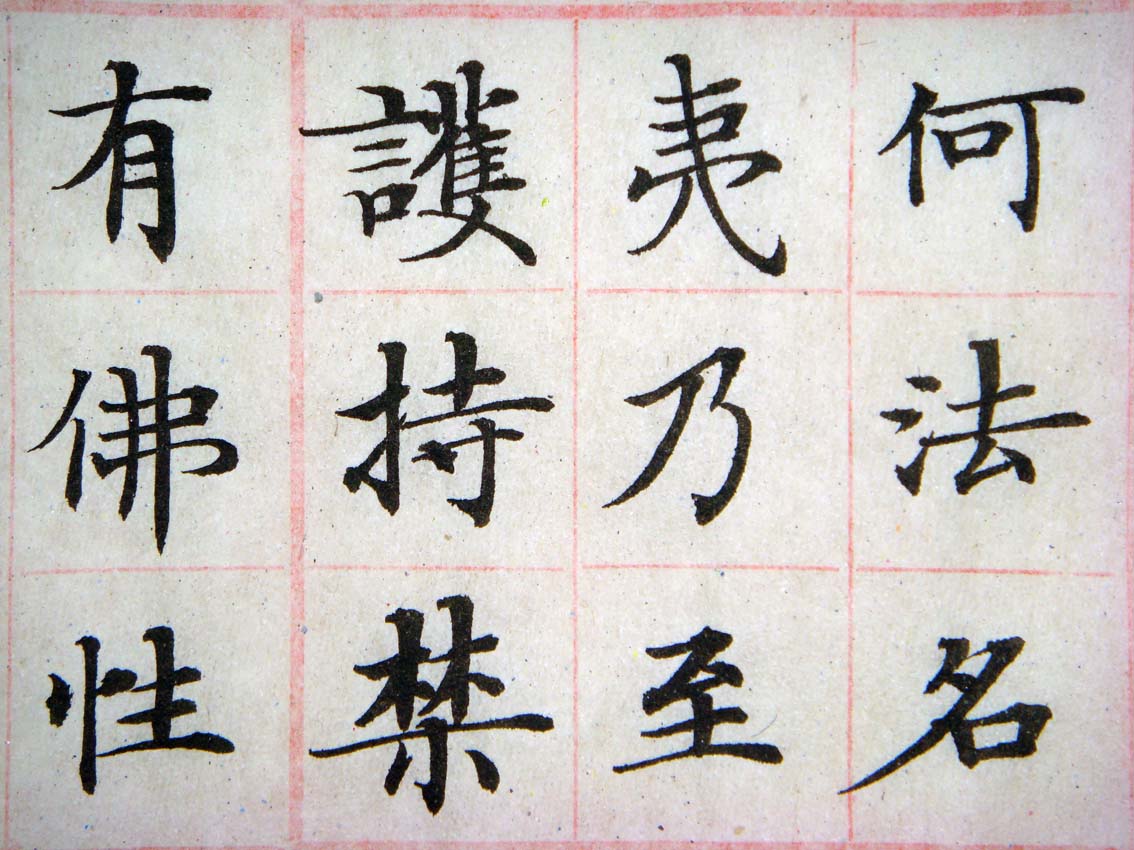 何法名
夷乃至
護持禁
有佛性